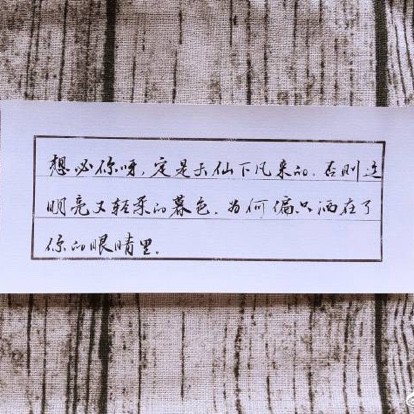 想必你呀,定是天仙下凡来的。否则这
明亮又轻柔的暮色,为何偏只洒在了
你的眼睛里。